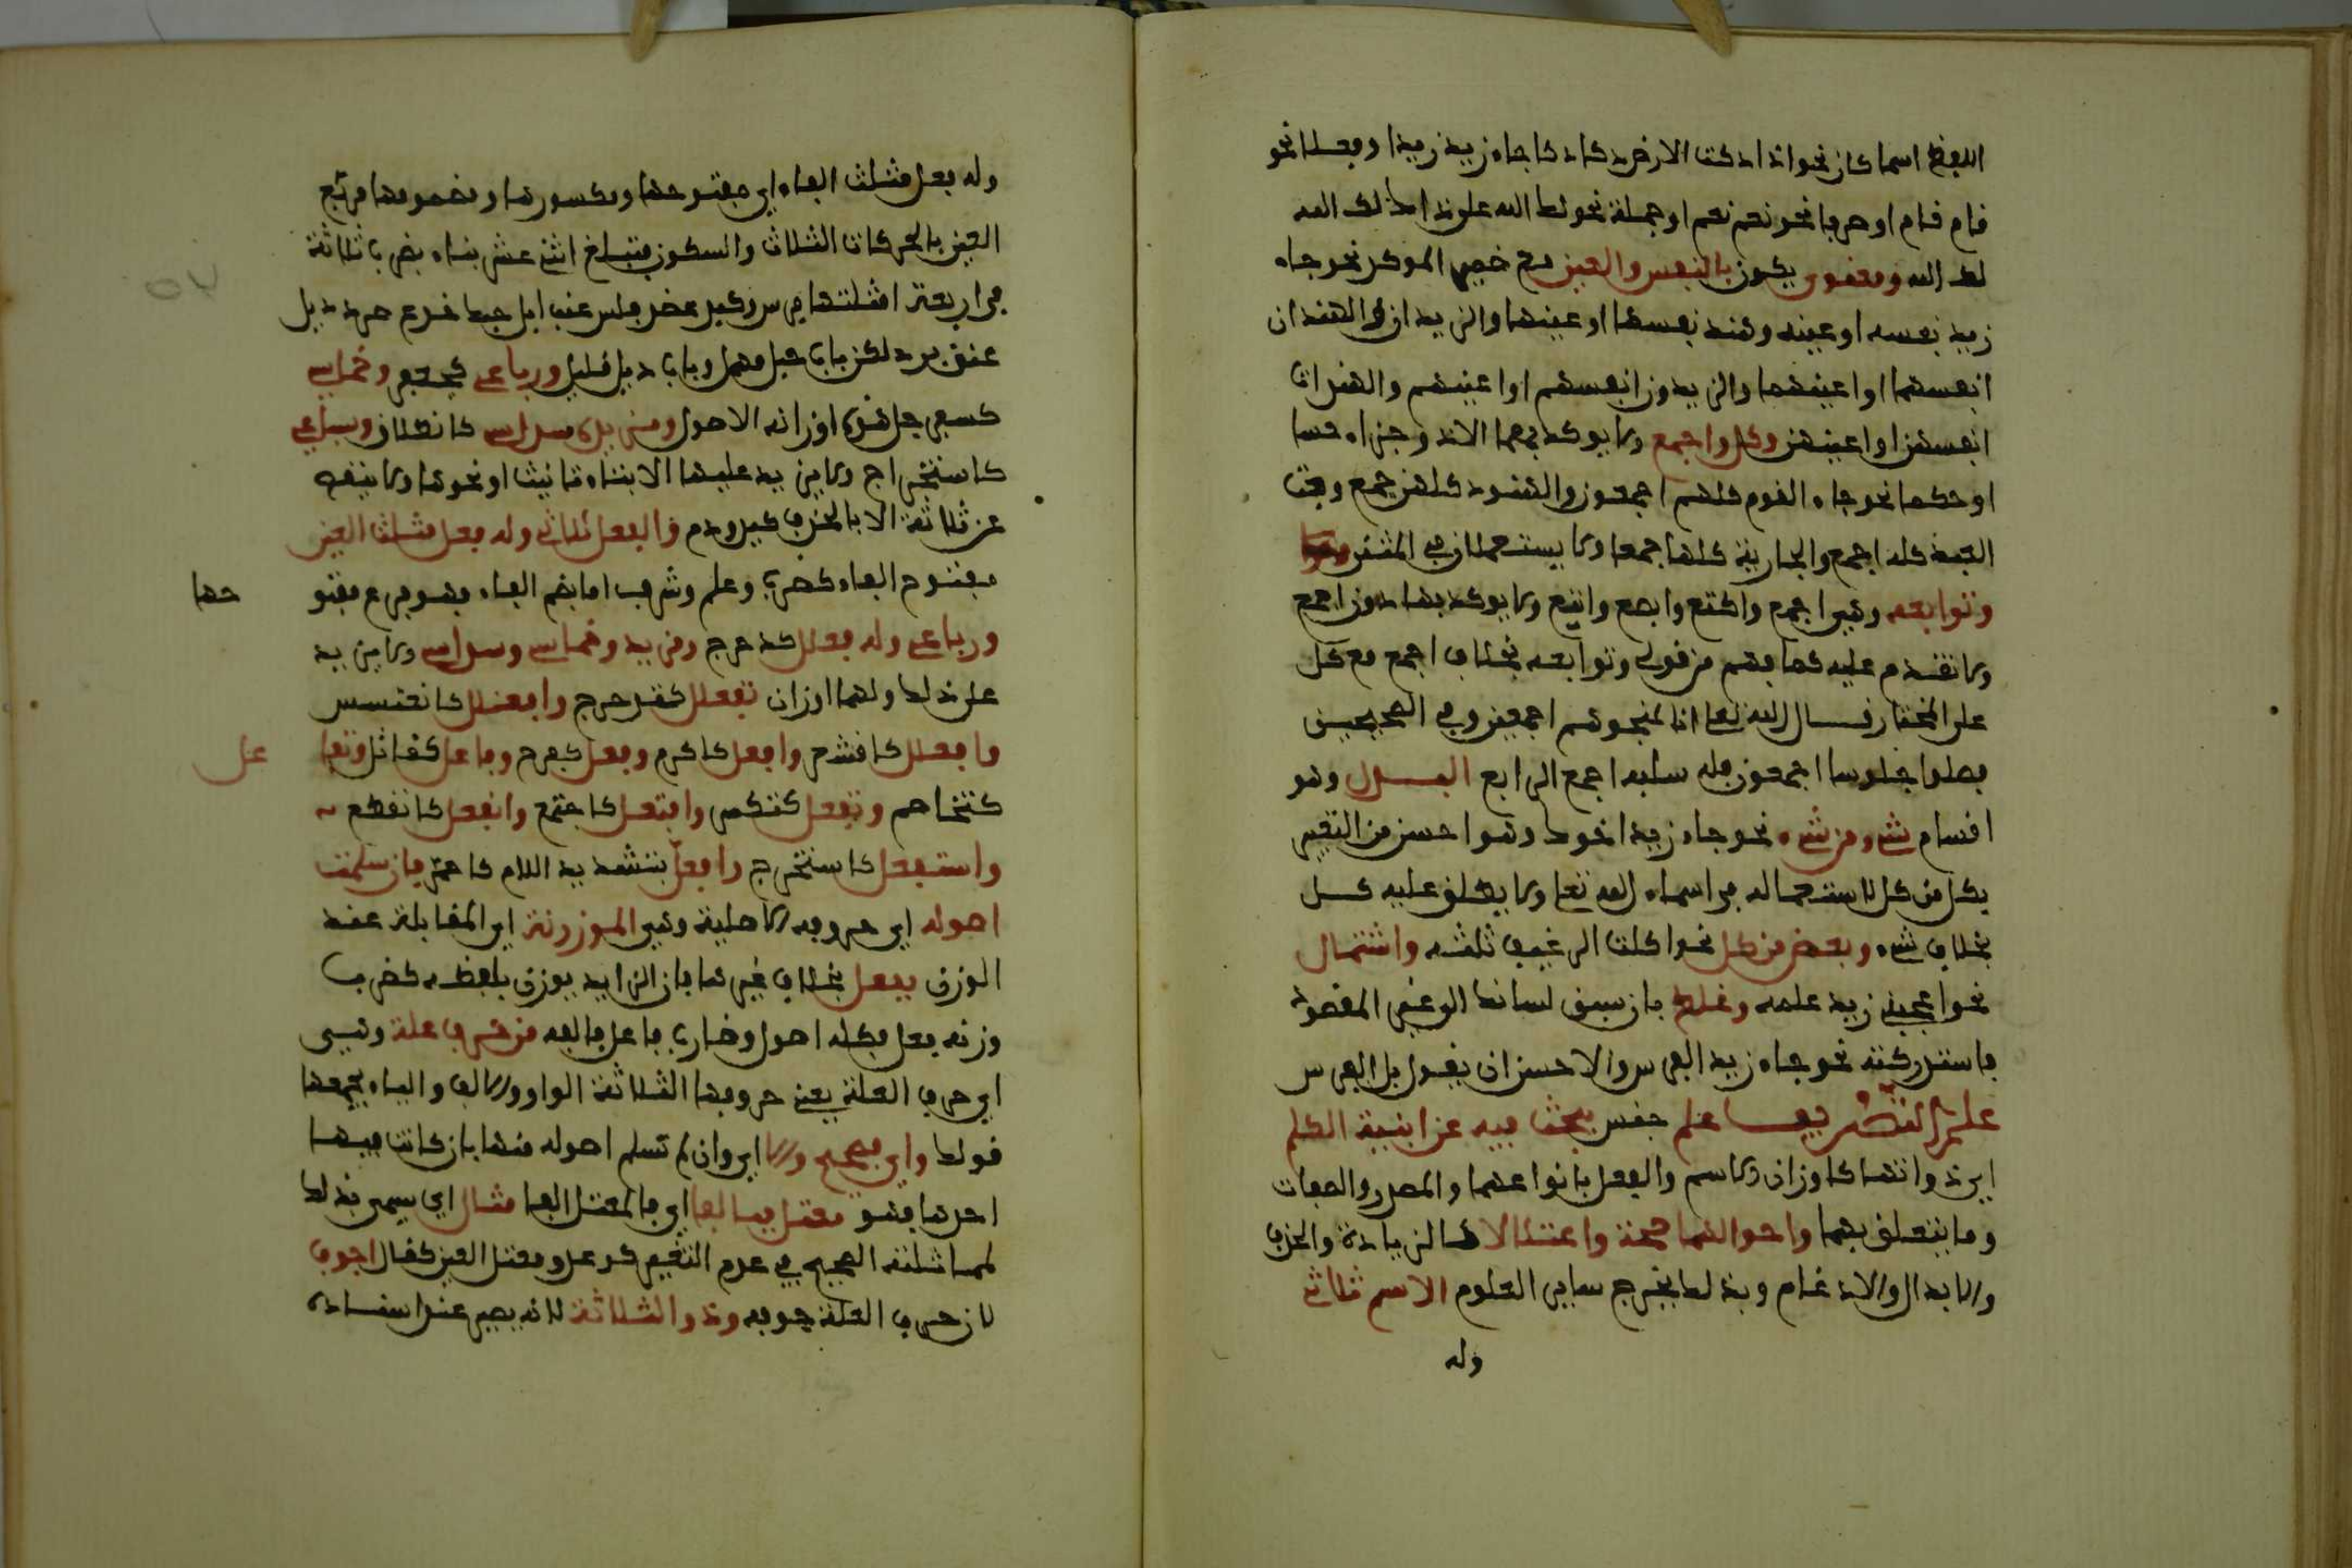 اللفظ اسما كان نحو اذا دكت الارض دكا دكا جاء زيد زيد او فعلا نحو
قام قام او حرفا نحو نعم نعم او جملة نحو لك الله على ذاك لك الله
لك الله ومعنوي يكون بالنفس والعين مع ضمير الموكد نحو جاء
زيد نفسه او عينه وهند نفسها او عينها والزيدان او الهندان
انفسهما او اعينهما والزيدون انفسهم او اعينهم والهندات
انفسهن او اعينهن وكل واجمع ولا يوكد بهما الا ذو اجزاء حسا
او حكما نحو جاء القوم كلهم اجمعون والهنود كلهن جمع وبعت
العبد كله اجمع والجارية كلها جمعا ولا يستعملان في المثنى
وتوابعه وهي اجمع واكتع وابصع وابتع ولا يوكد بها دون اجمع
ولا تقدم عليه كما فهم من قولي وتوابعه بخلاف اجمع مع كل
على المختار قال الله تعالى انا لمنجوهم اجمعين وفي الصحيحين
فصلوا جلوسا اجمعون فله سلبه اجمع الرابع البدل وهو
اقسام شيء من شيء نحو جاء زيد اخوك وهو احسن من التعبير
بكل من كل لاستعماله في اسماء الله تعالى ولا يطلق عليه كل
بخلاف شيء وبعض من كل نحو اكلت الرغيف ثلثه واشتمال
نحو اعجبني زيد علمه وغلط بان سبق لسانك الى غير المقصود
فاستدركته نحو جاء زيد الفرس والاحسن ان يقول بل الفرس
علم التصريف علم جنس يبحث فيه عن ابنية الكلم
اي ذواتها كاوزان الاسم والفعل بانواعهما والمصدر والصفات
وما يتعلق بهما واحوالها صحة واعتلالا كالزيادة والحذف
والابدال والادغام وبذلك يخرج ساير العلوم الاسم ثلاثي
وله
وله فعل مثلث الفاء اي مفتوحها ومكسورها ومضمومها مربع
العين بالحركات الثلاث والسكون فتبلغ اثني عشر بناء بضرب ثلاثة
في اربعة امثلتها فرس وكبد عضد فلس عنب ابل حبك جذع صرد دئل
عنق برد لكن باب حبك مهمل وباب دئل قليل ورباعي كجعفر وخماسي
كسفرجل هذه اوزانه الاصول ومزيده سداسي كانطلاق وسباعي
كاستخراج ولا يزيد عليها الا بتاء تانيث او نحوها ولا ينقص
عن ثلاثة الا بالحذف كيد ودم والفعل ثلاثي وله فعل مثلث العين
مفتوح الفاء كضرب وعلم وشرف اما بضم الفاء فهو فرع مفتو
حها
ورباعي وله فعلل كدحرج ومزيد وخماسي وسداسي ولا يزيد
على ذلك ولهما اوزان تفعلل كتدحرج وافعنلل كاقعنسس
وافعلل كاقشعر وافعل كاكرم وفعل كفرح وفاعل كقاتل وتفا
عل
كتخاصم وتفعل كتكسر وافتعل كاجتمع وانفعل كانقطع
واستفعل كاستخرج وافعل بتشديد اللام كاحمر فان سلمت
اصوله اي حروفه الاصلية وهي الموزونة اي المقابلة عند
الوزن بفعل بخلاف غيرها فان الزايد يوزن بلفظه كضرب
وزنه فعل فكله اصول وضارب فاعل فالفه من حرف علة وهي
اي حروف العلة يعني حروفها الثلاثة الواو والالف والياء يجمعها
قولك واي فصحيح والا اي وان لم تسلم اصوله منها بان كانت فيها
احدها فهو معتل فبالفا اي فالمعتل الفا مثال اي يسمى بذلك
لمماثلته الصحيح في عدم التغيير كوعد ومعتل العين كقال اجوف
لان حرف العلة جوفه وذو الثلاثة لانه يصير عند اسناده